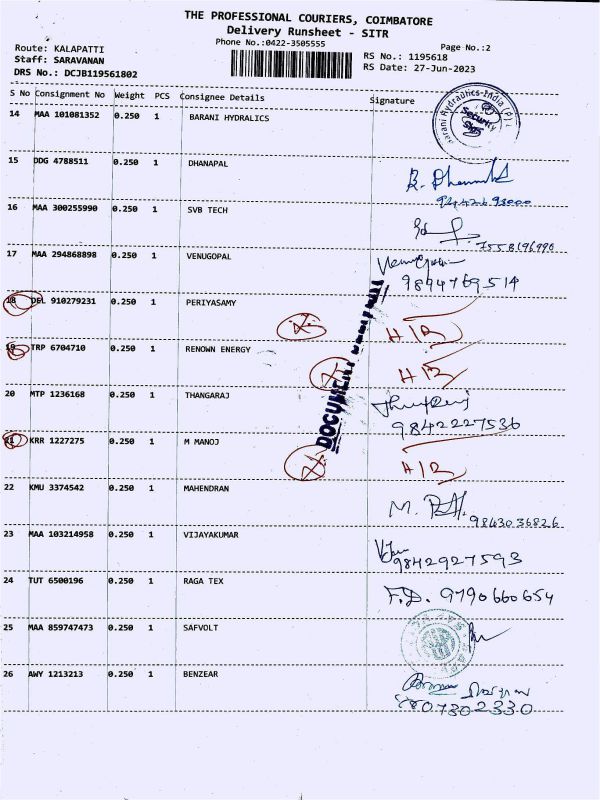 THE PROFESSIONAL COURIERS, COIMBATORE
Delivery Runsheet - SITR
Phone No.:0422-3505555
Page No.:2
Route: KALAPATTI
Staff: SARAVANAN
DRS No.: DCJB119561802
RS No.: 1195618
RS Date: 27-Jun-2023
S No Consignment No Weight PCS Consignee Details Signature
14 MAA 101081352 0.250 1 BARANI HYDRALICS
Security
15 DDG 4788511 0.250 1 DHANAPAL
16 MAA 300255990 0.250 1 SVB TECH
7558196990
17 MAA 294868898 0.250 1 VENUGOPAL
9894769514
18 DEL 910279231 0.250 1 PERIYASAMY
H/R
19 TRP 6704710 0.250 1 RENOWN ENERGY
H/R
20 MTP 1236168 0.250 1 THANGARAJ
9842227536
DOCUMENT
21 KRR 1227275 0.250 1 M MANOJ
H/R
22 KMU 3374542 0.250 1 MAHENDRAN
9843036826
23 MAA 103214958 0.250 1 VIJAYAKUMAR
9842927593
24 TUT 6500196 0.250 1 RAGA TEX
F.D. 9790660654
25 MAA 859747473 0.250 1 SAFVOLT
26 AWY 1213213 0.250 1 BENZEAR